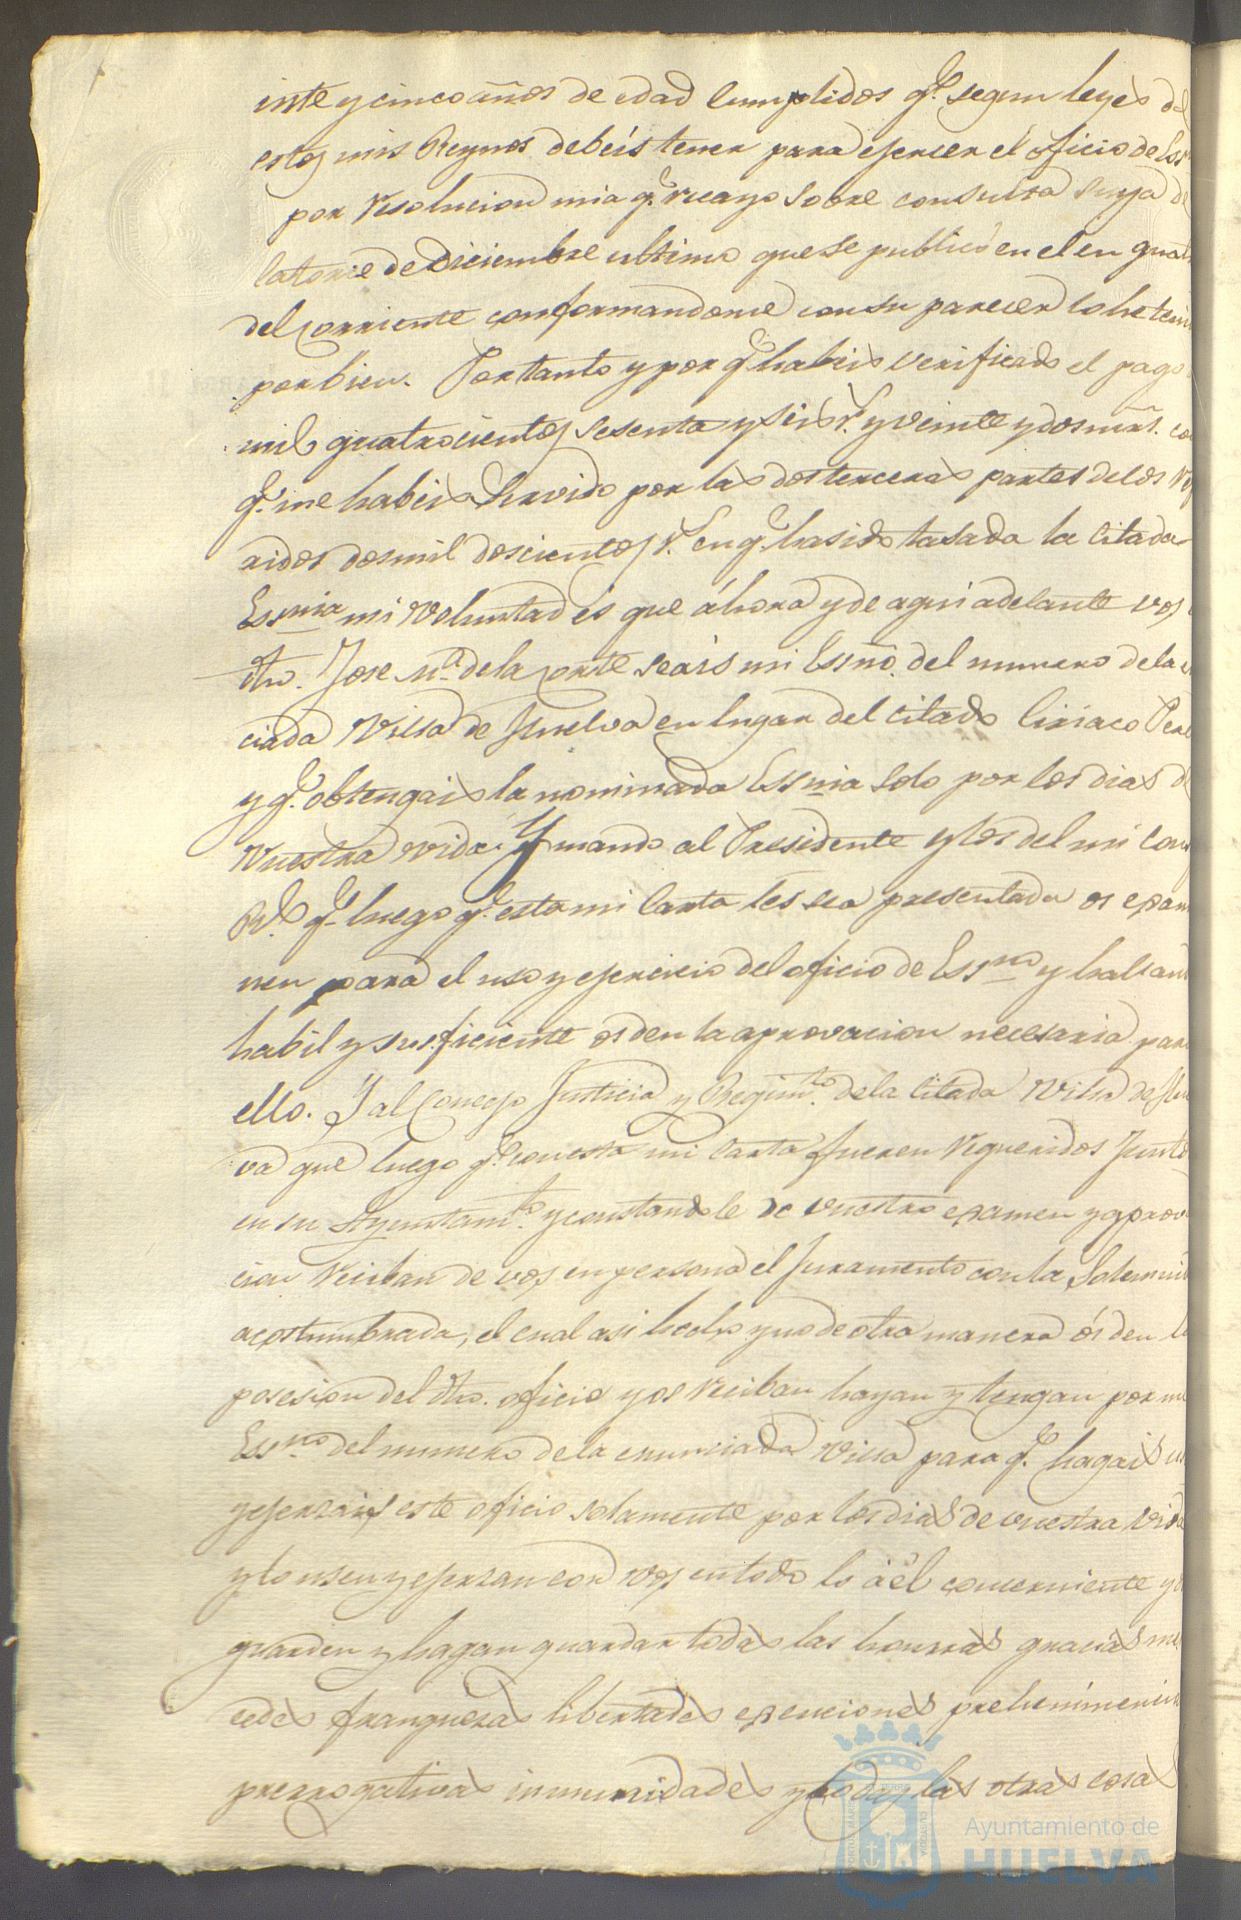 inte y cinco años de edad cumplidos q.e segun leyes de
estos mis Reynos debeis tener para ejercer el oficio de Ess
por resolucion mia q.e recayo sobre consulta suya de
catorce de Diciembre ultimo que se publicó en el en quat
del corriente conformandome con su parecer lo he teni
por bien. Portanto y por q.e habeis verificado el pago
mil quatrocientos sesenta y seis r.s y veinte y dos mrs. co
q.e me habeis servido por las dos terceras partes de los ref
ridos dosmil doscientos r.s en q.e ha sido tasada la citada
Essnia mi voluntad és que áhora y de aqui adelante vos
dho. Jose M.a de la Corte seais mi Essño. del numero de la
ciada Villa de Huelva en lugar del citado Ciriaco Pere
y q.e obtengais la nominada Essnia solo por los dias de
vuestra vida. Y mando al Presidente y los del mi Con
R.l q.e luego q.e esta mi Carta les sea presentada os exam
nen para el uso y ejercicio del oficio de Essno y halland
habil y suficiente os den la aprovacion necesaria para
ello. Y al Concejo Justicia y Regim.to de la citada Villa de Hu
va que luego q.e con esta mi Carta fueren requeridos Junto
en su Ayuntam.to y constandole de vuestro examen y aprov
cion reciban de vos en persona el Juramento con la Solemni
acostumbrada, el cual asi hecho y no de otra manera ós den l
posesion del dho. oficio y os reciban hayan y tengan por mi
Essno del numero de la enunciada Villa para q.e hagais
y ejerzais este oficio solamente por los dias de vuestra vida
y lo usen y ejerzan con vos en todo lo á él concerniente y
guarden y hagan guardar todas las honrras gracias me
cedes franquezas libertades exenciones preheminencia
prerrogativas inmunidades y todas las otras cosas
Ayuntamiento de
HUELVA